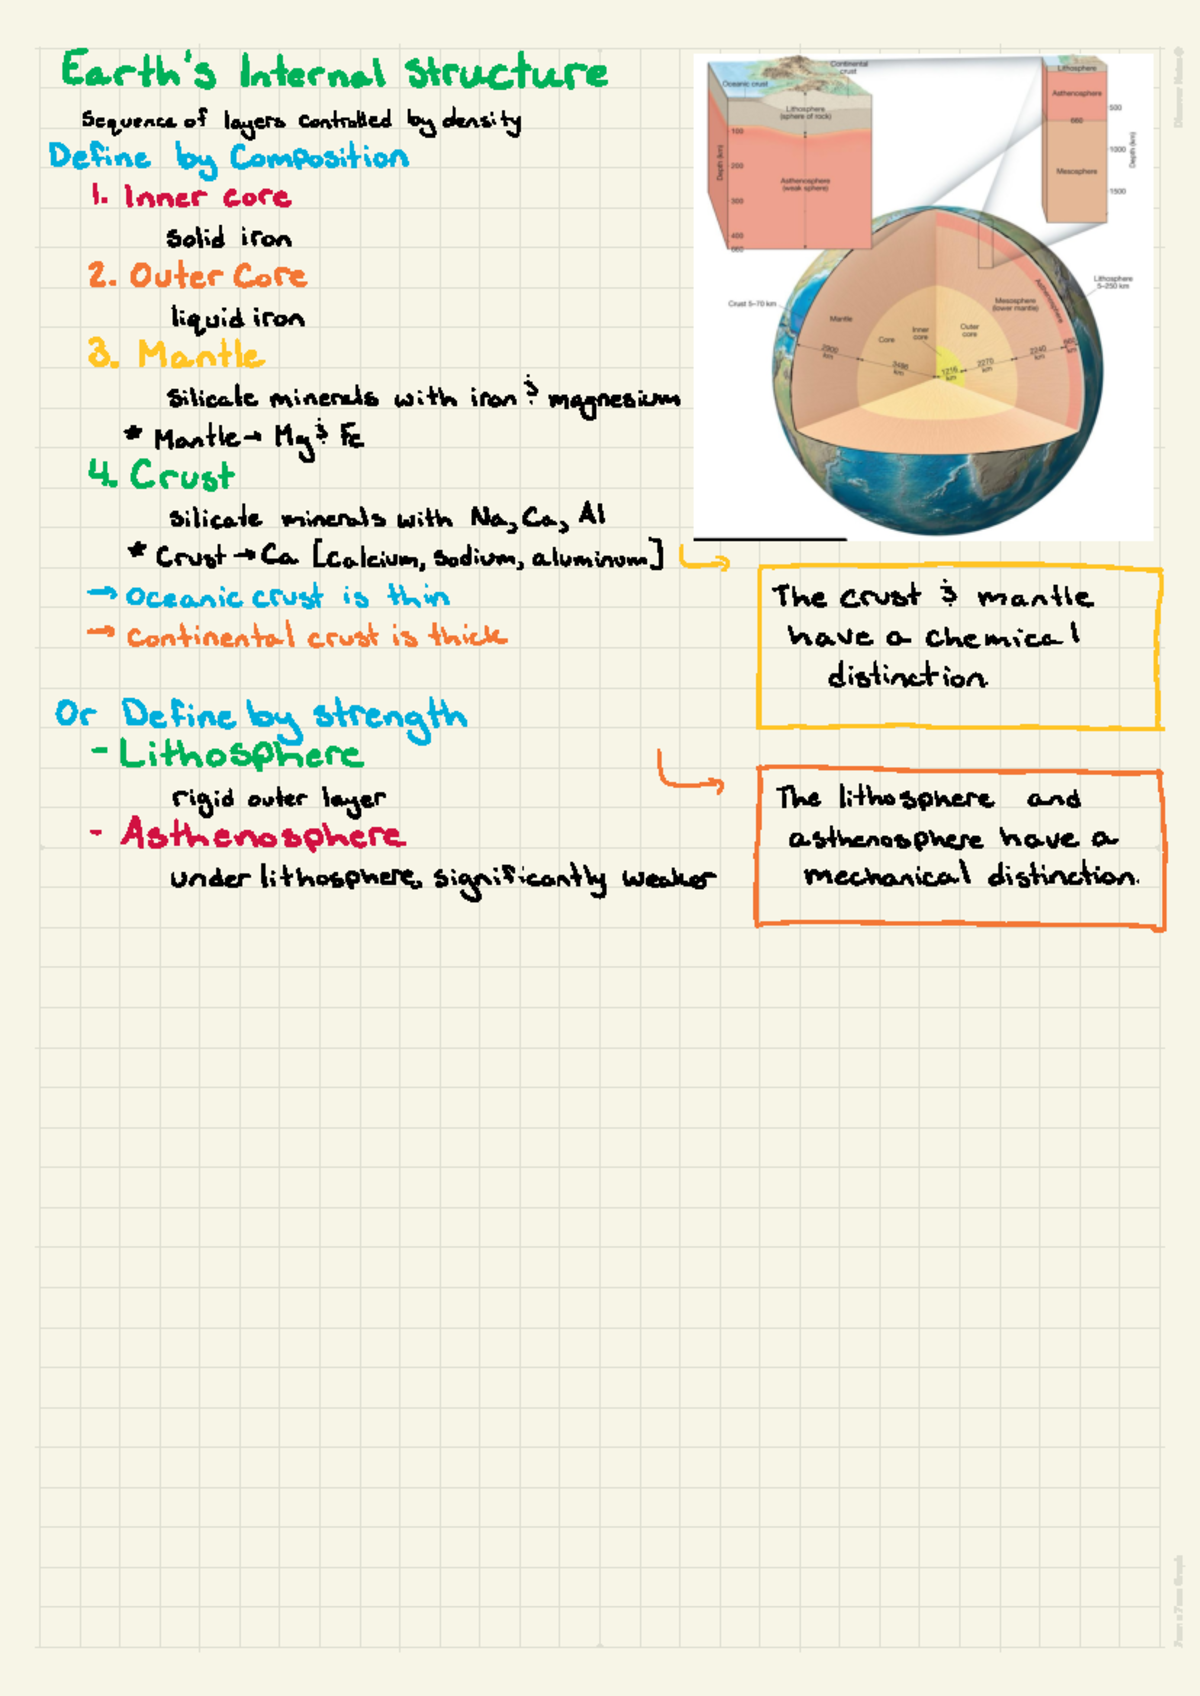 Earth's Internal Structure
Sequence of layers controlled by density
Define by Composition
1. Inner core
solid iron
2. Outer Core
liquid iron
3. Mantle
Silicate minerals with iron & magnesium
* Mantle → Mg & Fe
4. Crust
silicate minerals with Na, Ca, Al
* Crust → Ca [calcium, sodium, aluminum]
→ Oceanic crust is thin
→ Continental crust is thick
Or Define by strength
- Lithosphere
rigid outer layer
- Asthenosphere
under lithosphere, significantly weaker
Continental crust
Oceanic crust
Lithosphere
(sphere of rock)
100
200
Depth (km)
Asthenosphere
(weak sphere)
300
400
660
Lithosphere
Asthenosphere
500
660
1000
Depth (km)
Mesosphere
1500
Lithosphere
5–250 km
Crust 5–70 km
Asthenosphere
Mesosphere
(lower mantle)
Mantle
Outer
core
Inner
core
Core
2900
km
3486
km
1216
km
2270
km
2240
km
660
km
The crust & mantle
have a chemical
distinction
The lithosphere and
asthenosphere have a
mechanical distinction.